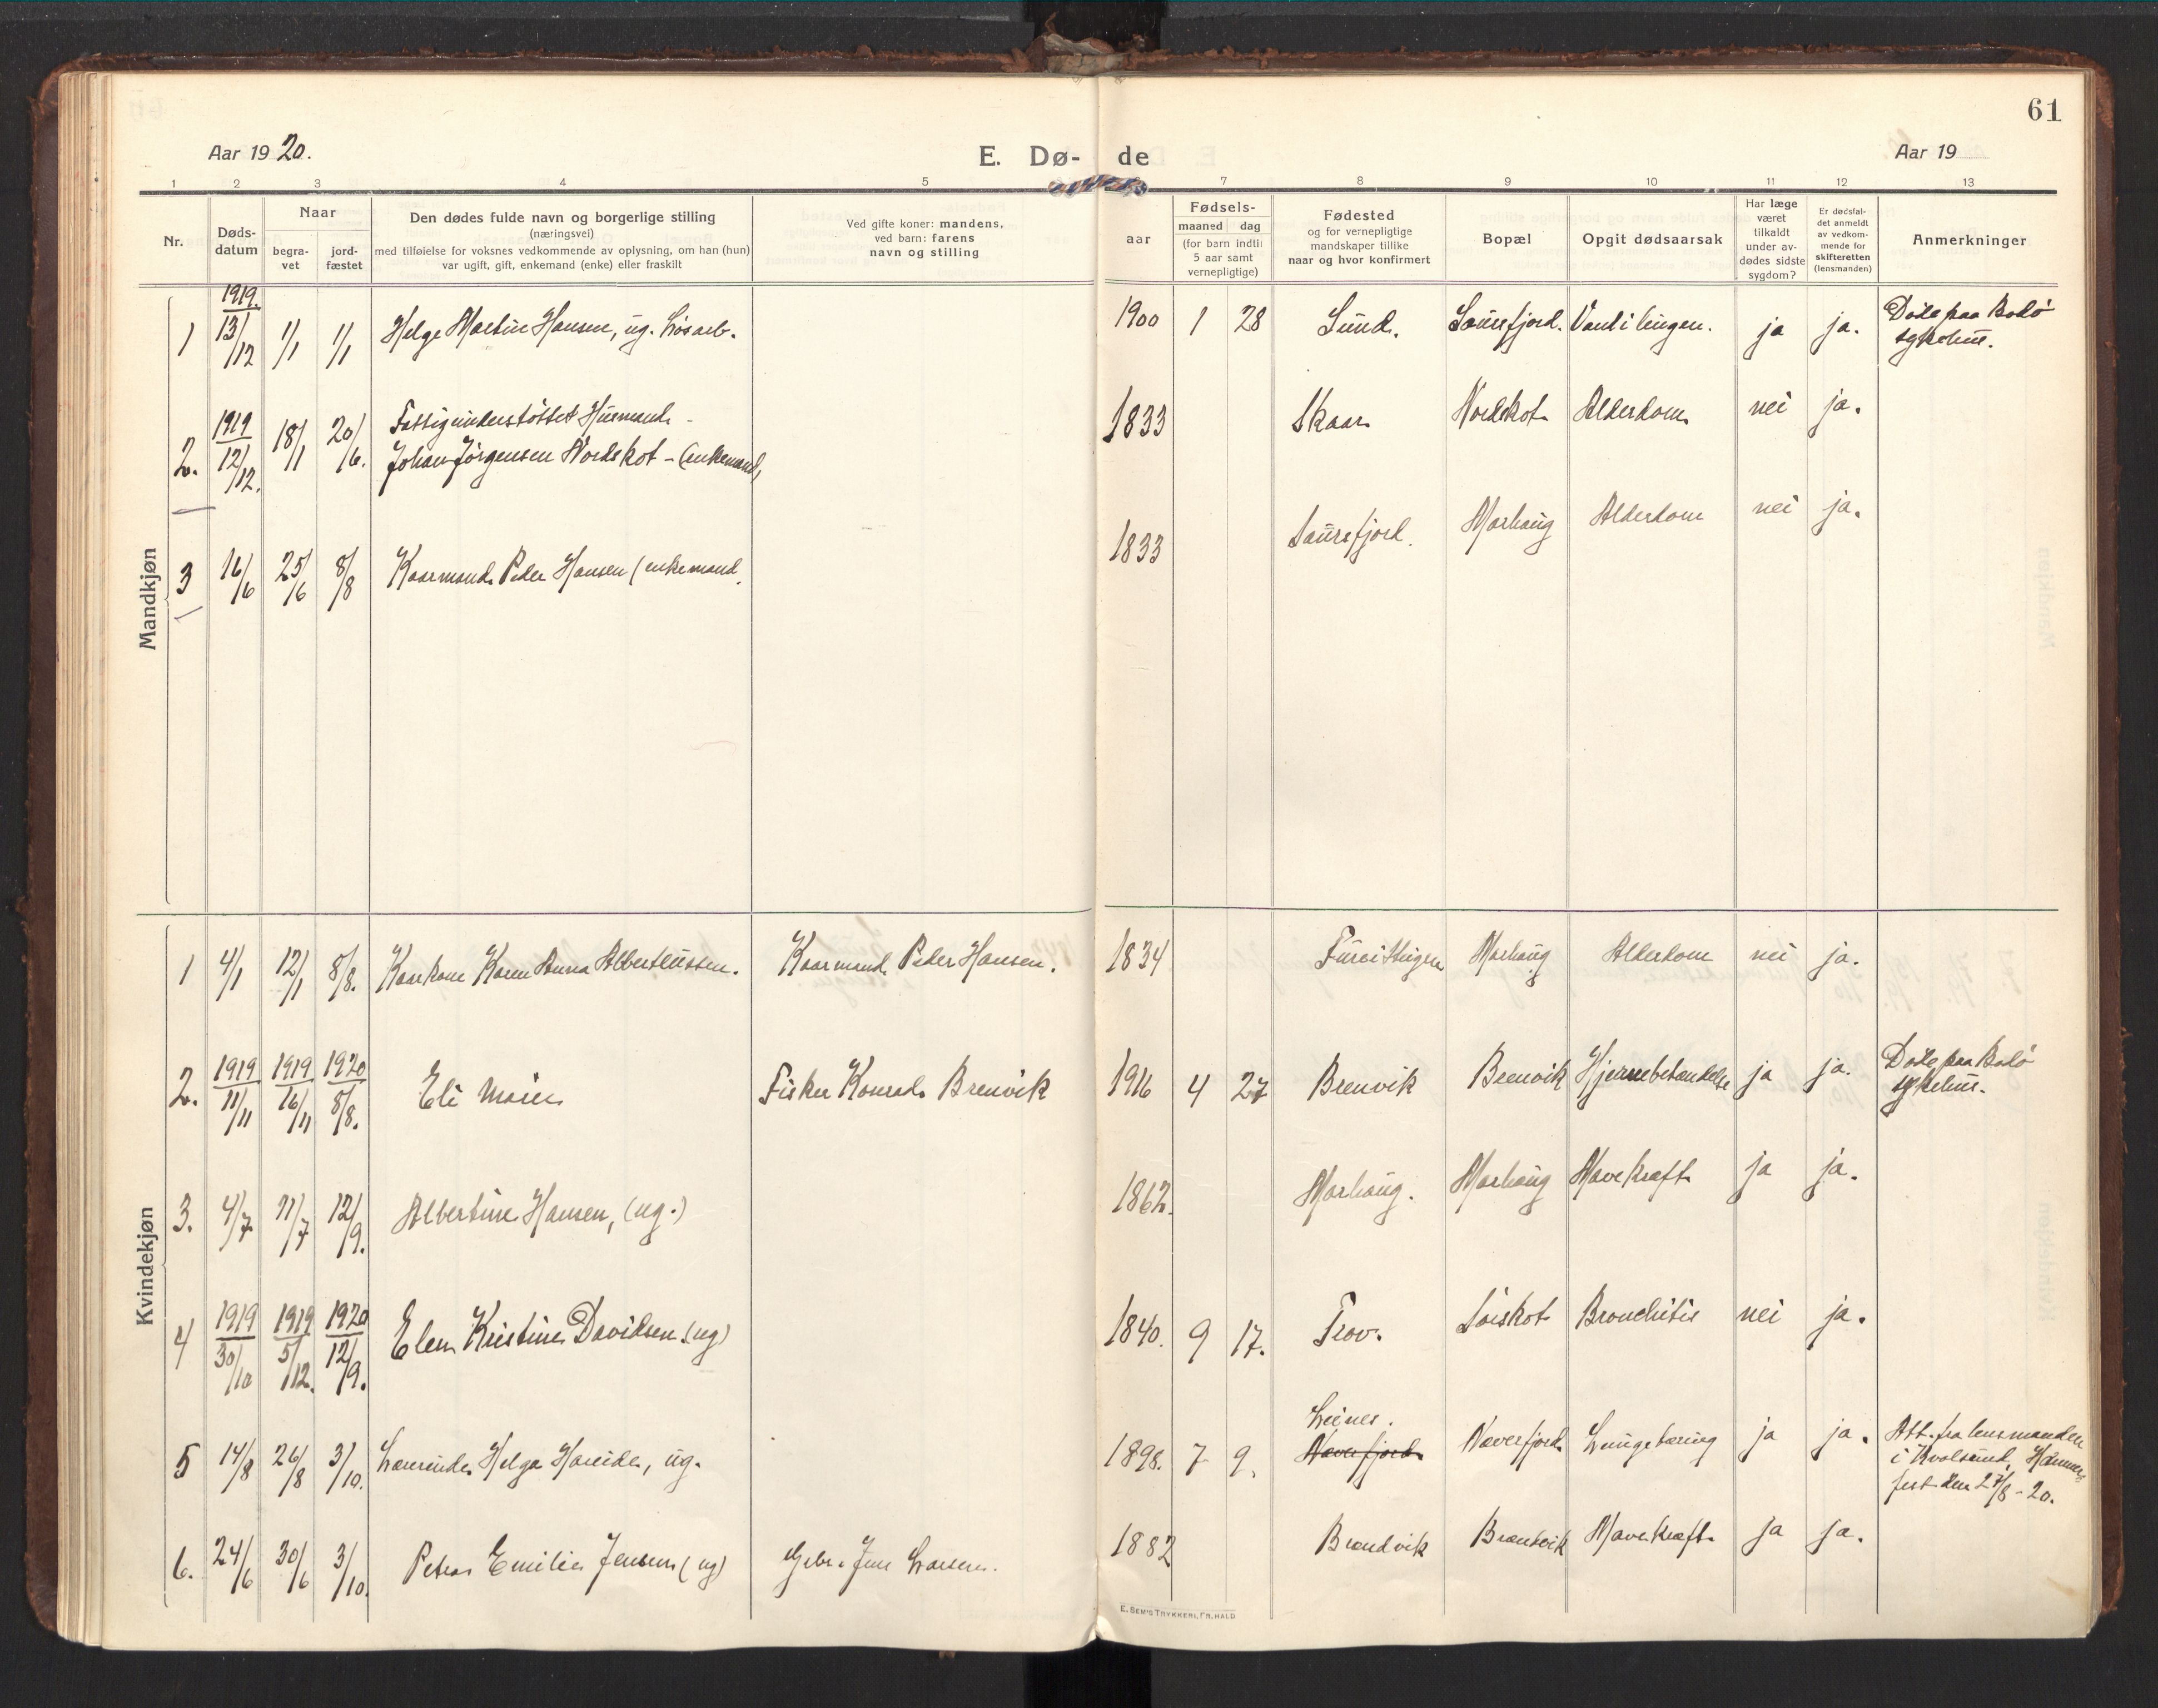 61
Aar 1920.
E. Dø- de
Aar 19
1 2 3 4 5 7 8 9 10 11 12 13
Nr.
Døds-
datum
Naar
begra-
vet
jord-
fæstet
Den dødes fulde navn og borgerlige stilling
(næringsvei)
med tilføielse for voksnes vedkommende av oplysning, om han (hun)
var ugift, gift, enkemand (enke) eller fraskilt
Ved gifte koner: mandens,
ved barn: farens
navn og stilling
aar
Fødsels-
maaned dag
(for barn indtil
5 aar samt
vernepligtige)
Fødested
og for vernepligtige
mandskaper tillike
naar og hvor konfirmert
Bopæl
Opgit dødsaarsak
Har læge
været
tilkaldt
under av-
dødes sidste
sygdom?
Er dødsfal-
det anmeldt
av vedkom-
mende for
skifteretten
(lensmanden)
Anmerkninger
Mandkjøn
1 1919. 13/12 1/1 1/1 Helge Martin Hansen, ug. Løsarb. 1900 1 28 Sund. Saursfjord. Vand i lungen. ja ja. Døde paa Bodø
sykehus.
2. 1919 12/12. 18/1 20/6. Fattigunderstøttet Husmand -
Johan Jørgensen Nordskot - (enkemand) 1833 Skaar Nordskot Alderdom nei ja.
3 16/6 25/6 8/8 Kaarmand Peder Hansen (enkemand 1833 Saursfjord. Marhaug Alderdom nei ja.
Kvindekjøn
1 4/1 12/1 8/8. Kaarkone Karen Anna Albertsen. Kaarmand Peder Hansen. 1834 Marhaug Alderdom nei ja.
2. 1919 11/11 1919 16/11 1920 8/8. Eli Marie Fisker Konrad Brenvik 1916 4 27 Brenvik Brenvik Hjernebetændelse ja ja. Døde paa Bodø
sykehus.
3. 4/7 11/7 12/9. Albertine Hansen, (ug.) 1862. Marhaug. Marhaug Mavekræft ja ja.
4 1919 30/10 1919 5/12. 1920 12/9. Elen Kristine Davidsen (ug) 1840. 9 17. Trov. Løiskot Bronchitis nei ja.
5 14/8 26/8 3/10. Lærerinde Helga Hareide, ug. 1898. 7 9. Leines.
Naverfjord Naverfjord Lungetæring ja ja. Att. fra lensmanden
i Kvalsund, Hammer-
fest den 27/8 - 20.
6. 24/6 30/6 3/10. Petra Emilie Jensen (ug) Gbr. Jens Larsen. 1882 Brandvik Brandvik Mavekræft ja ja.
E. SEM'S TRYKKERI, FR.HALD